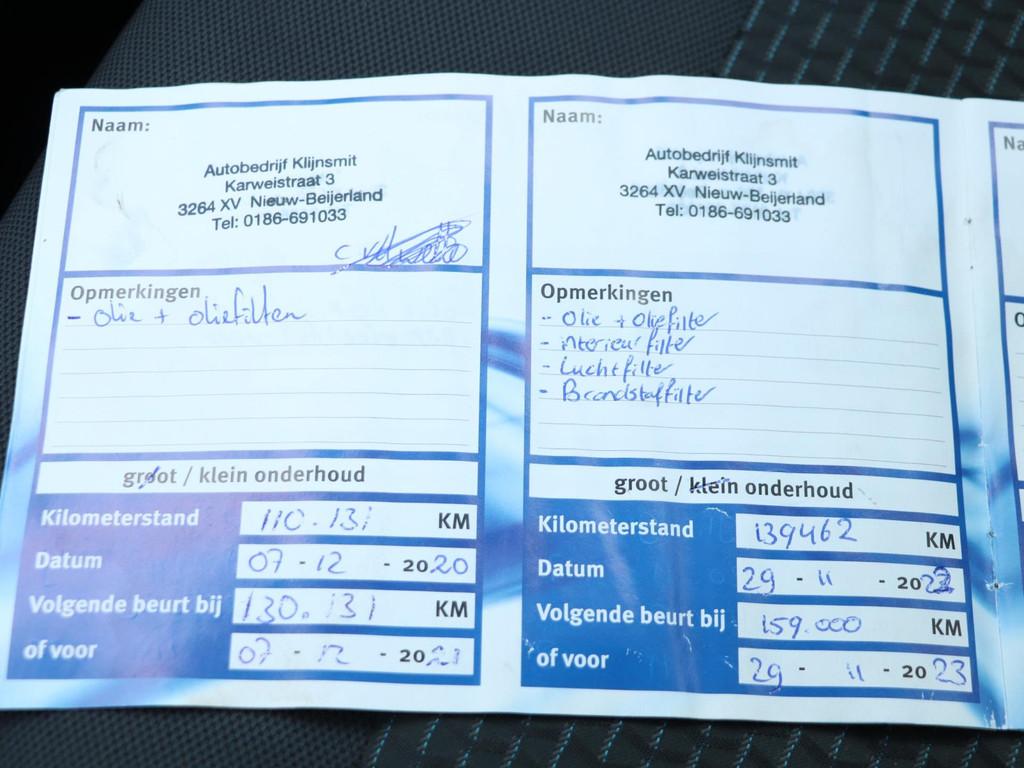 Naam:
Autobedrijf Klijnsmit
Karweistraat 3
3264 XV Nieuw-Beijerland
Tel: 0186-691033
Opmerkingen
- Olie + oliefilter
groot / klein onderhoud
Kilometerstand 110.131 KM
Datum 07 - 12 - 2020
Volgende beurt bij 130.131 KM
of voor 07 - 12 - 2021
Naam:
Autobedrijf Klijnsmit
Karweistraat 3
3264 XV Nieuw-Beijerland
Tel: 0186-691033
Opmerkingen
- Olie + Oliefilter
- interieurfilter
- Luchtfilter
- Brandstoffilter
groot / klein onderhoud
Kilometerstand 139462 KM
Datum 29 - 11 - 2022
Volgende beurt bij 159.000 KM
of voor 29 - 11 - 2023
Na
O